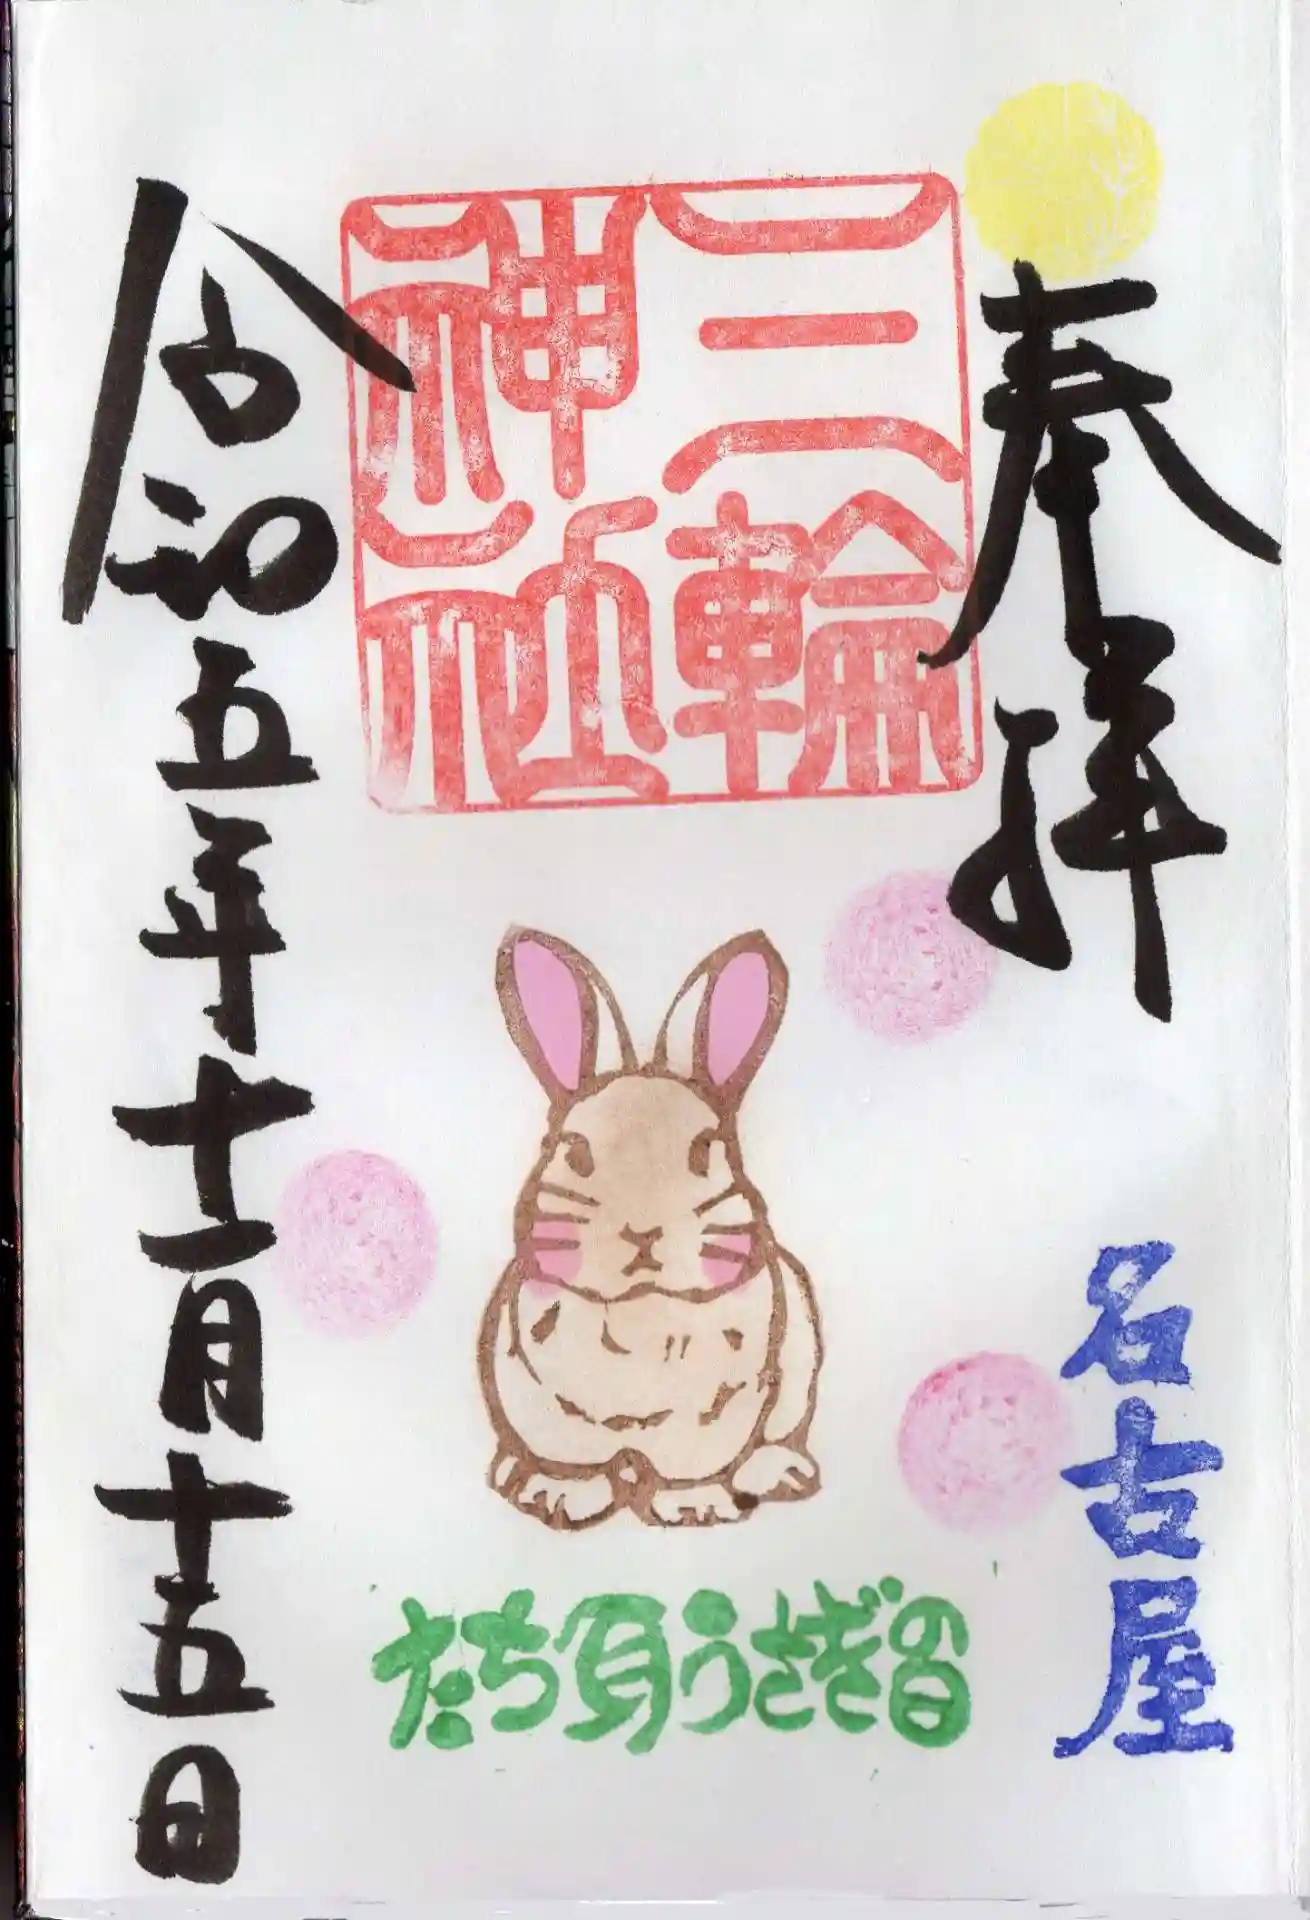 奉拝
名古屋
三輪
神社
たち耳うさぎの日
令和五年十一月十五日